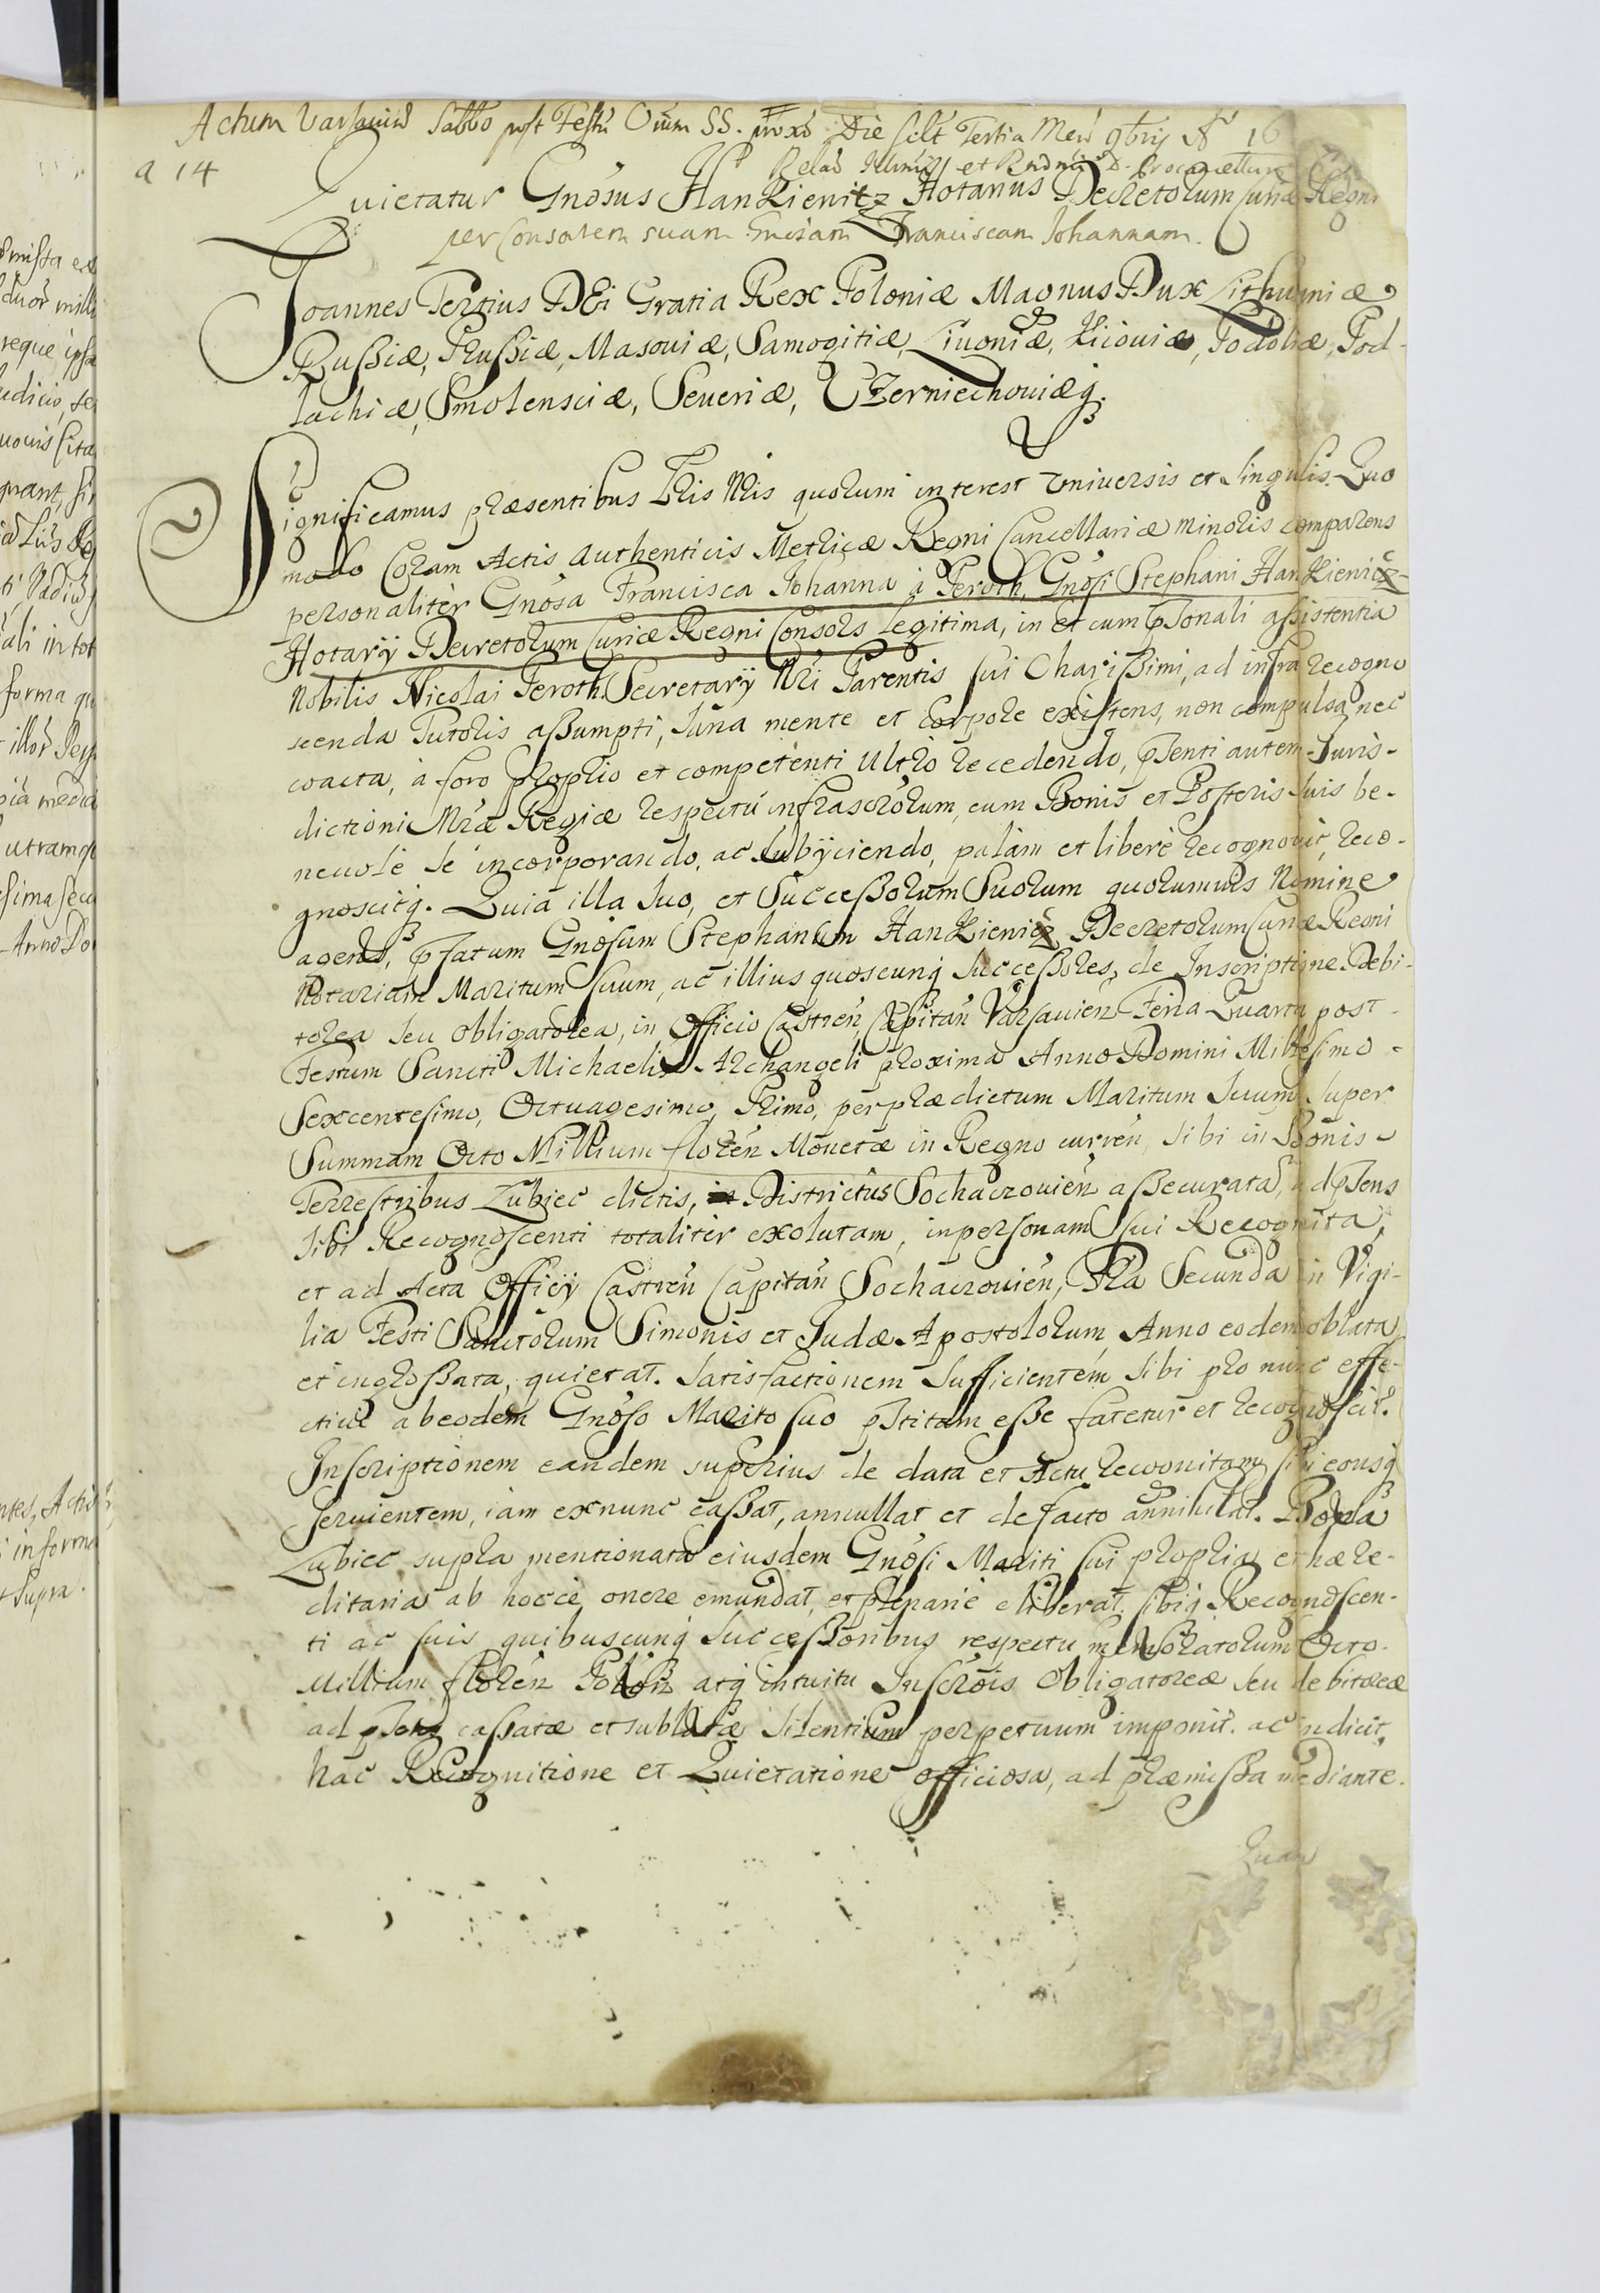 Actum Varsaviæ Sabbo post Festū Oiūm SS. proxo Die scilt Tertia Mens 9bris Aō 16
a 14
Relaō Illmi et Rndmi D. Procancellarii
Quietatur Gnosus Hankieuitz Notarius Decretorum Curiæ Regni
per Consortem suam Gnosam Franciscam Johannam.
Joannes Tertius DEi Gratia Rex Poloniæ Magnus Dux Lithuaniæ
Russiæ, Prussiæ, Masouiæ, Samogitiæ, Liuoniæ, Kiiouiæ, Podoliæ, Pod-
lachiæ, Smolensciæ, Seueriæ, Czerniechouiæq.
Significamus præsentibus Lris Nris quorum interest Vniuersis et Singulis. Quo
modo Coram Actis Authenticis Metricæ Regni Cancellariæ minoris comparens
personalitèr Gnosa Francisca Johanna à Peroth, Gnosi Stephani Hankieuicz
Notarij Decretorum Curiæ Regni Consors legitima, in et cum psonali assistentia
Nobilis Nicolai Peroth Secretarij Nri Parentis sui Charissimi, ad infra recogno
scenda Tutoris assumpti, sana mente et corpore existens, non compulsa nec
coacta, à foro proprio et competenti Ultro recedendo, psenti autem Juris-
dictioni Nræ Regiæ respectu infrascrorum, cum Bonis et Posteris suis be-
neuolè se incorporando, ac subijciendo, palàm et liberè recognouit, reco-
gnoscitq. Quia illa suo, et Successorum Suorum quorumuis Nomine
agens, pfatum Gnosum Stephanum Hankieuicz Decretorum Curiæ Regni
Notarium Maritum suum, ac illius quoscunq Successores, de Inscriptione Debi-
torea seu obligatorea, in Officio Castren, Capitan Varsauien Feria Quarta post
Festum Sancti Michaelis Archangeli proxima Anno Domini Millesimo
Sexcentesimo, Octuagesimo, Primo, per prædictum Maritum suum super
Summam Octo Millium floren Monetæ in Regno curren, sibi in Bonis
Terrestribus Lubiec dictis, Districtus Sochaczouien assecurata, ad psens
sibi Recognoscenti totaliter exolutam, in personam sui Recognita,
et ad Acta Officij Castren Capitan Sochaczouien, Fra Secunda in Vigi-
lia Festi Sanctorum Simonis et Judæ Apostolorum, Anno eodem oblata
et ingrossata, quietat. Satisfactionem sufficientem sibi pro nunc effe-
ctiuè ab eodem Gnoso Marito suo pstitam esse fatetur et recognoscit.
Inscriptionem eandem superius de data et Actu recognitam sibi eousq
seruientem, iam exnunc cassat, annullat et de facto annihilat. Bona
Lubiec supra mentionata eiusdem Gnosi Mariti sui propria et hære-
ditaria ab hocce onere emundat, et plenariè eliberat. sibiq Recognoscen-
ti ac suis quibuscunq Successoribus respectu memoratorum Octo
Millium floren Polon atq intuitu Inscrois Obligatoreæ seu debitoreæ
ad psens cassatæ et sublatæ silentium perpetuum imponit. ac indicit,
hac Recognitione et Quietatione officiosa, ad præmissa mediante.
Quam